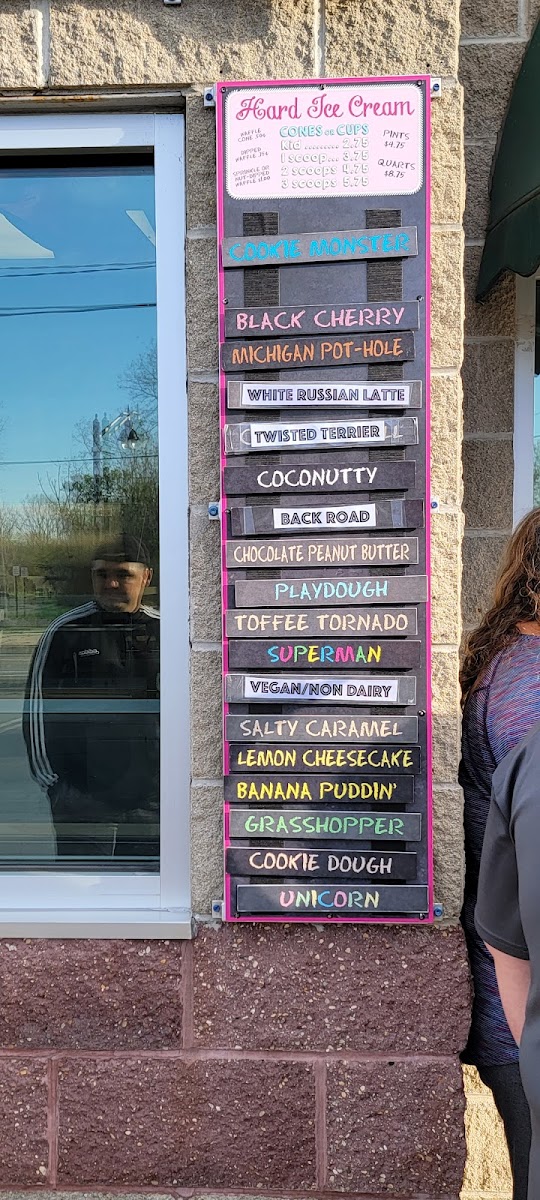 Hard Ice Cream
WAFFLE
CONE 50¢
DIPPED
WAFFLE 75¢
SPRINKLE OR
NUT-DIPPED
WAFFLE
CONES OR CUPS
Kid ......... 2.75
1 scoop... 3.75
2 scoops 4.75
3 scoops 5.75
PINTS
$4.75
QUARTS
$8.75
COOKIE MONSTER
BLACK CHERRY
MICHIGAN POT-HOLE
WHITE RUSSIAN LATTE
TWISTED TERRIER
COCONUTTY
BACK ROAD
CHOCOLATE PEANUT BUTTER
PLAYDOUGH
TOFFEE TORNADO
SUPERMAN
VEGAN/NON DAIRY
SALTY CARAMEL
LEMON CHEESECAKE
BANANA PUDDIN'
GRASSHOPPER
COOKIE DOUGH
UNICORN
adidas